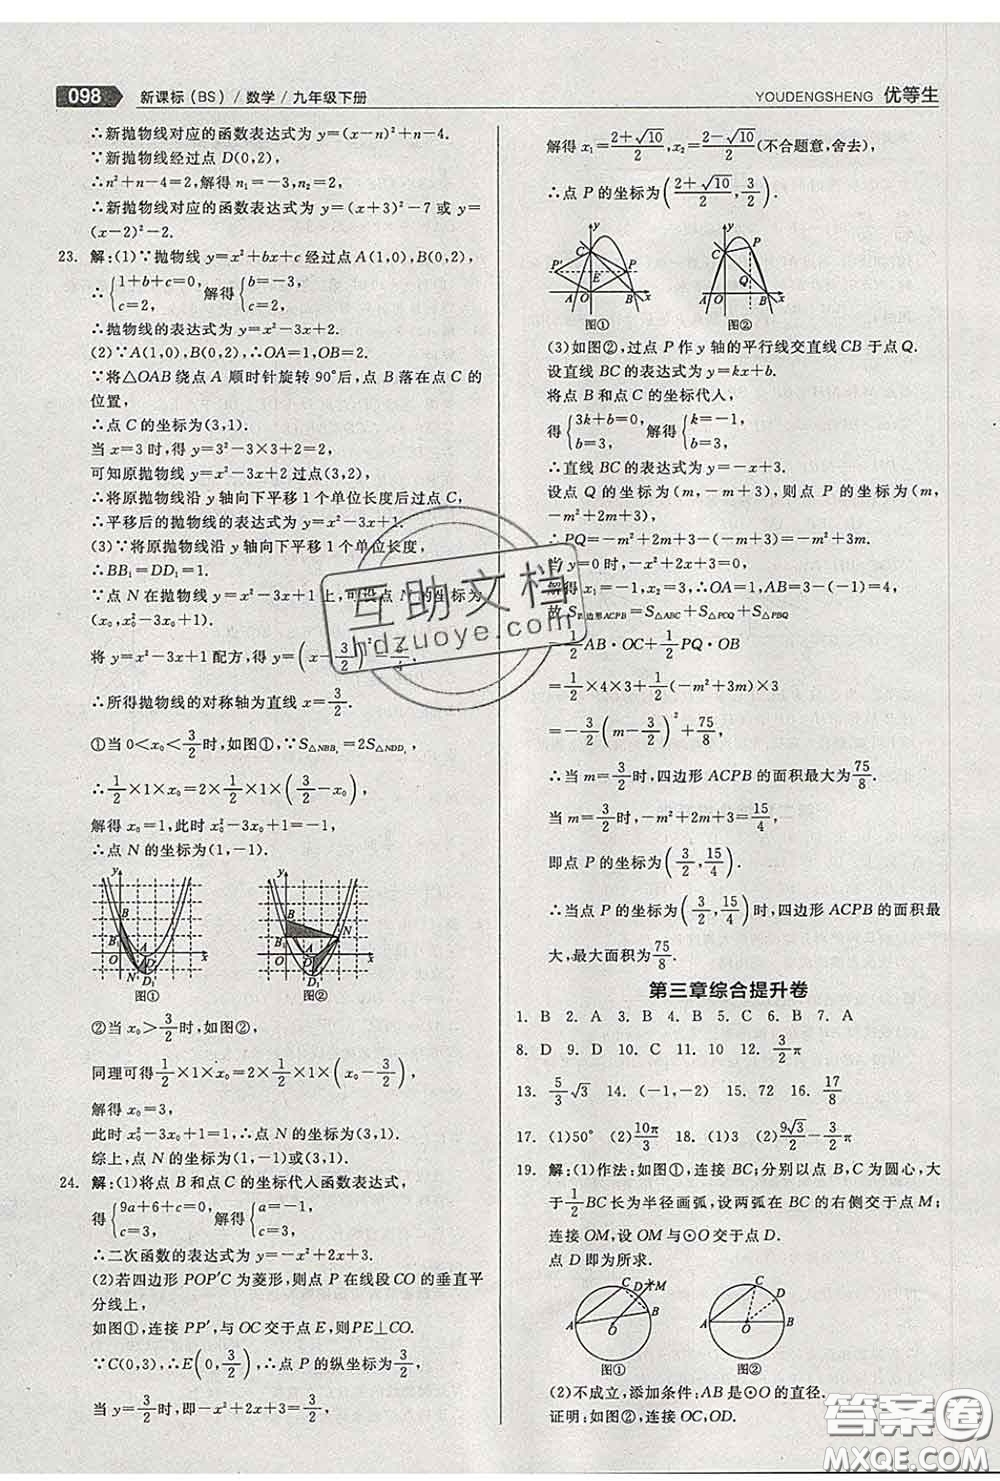 098 新课标(BS)/数学/九年级下册
YOUDENGSHENG 优等生
∴新抛物线对应的函数表达式为 y=(x-n)²+n-4.
∵新抛物线经过点 D(0,2),
∴n²+n-4=2,解得 n₁=-3,n₂=2,
∴新抛物线对应的函数表达式为 y=(x+3)²-7 或 y=
(x-2)²-2.
23. 解:(1)∵抛物线 y=x²+bx+c 经过点 A(1,0),B(0,2),
∴{1+b+c=0, c=2, 解得{b=-3, c=2,
∴抛物线的表达式为 y=x²-3x+2.
(2)∵A(1,0),B(0,2),∴OA=1,OB=2.
∵将△OAB 绕点 A 顺时针旋转 90°后,点 B 落在点 C 的
位置,
∴点 C 的坐标为(3,1).
当 x=3 时,得 y=3²-3×3+2=2,
可知原抛物线 y=x²-3x+2 过点(3,2),
∴将原抛物线沿 y 轴向下平移 1 个单位长度后过点 C,
∴平移后的抛物线的表达式为 y=x²-3x+1.
(3)∵将原抛物线沿 y 轴向下平移 1 个单位长度,
∴BB₁=DD₁=1.
∵点 N 在抛物线 y=x²-3x+1 上,可设点 N 的坐标为
(x₀,x₀²-3x₀+1),
将 y=x²-3x+1 配方,得 y=(x-3/2)²-5/4,
∴所得抛物线的对称轴为直线 x=3/2.
①当 0<x₀<3/2时,如图①,∵S△NBB₁=2S△NDD₁,
∴1/2×1×x₀=2×1/2×1×(3/2-x₀),
解得 x₀=1,此时 x₀²-3x₀+1=-1,
∴点 N 的坐标为(1,-1).
y B B₁ A D O N D₁ x
图①
y B B₁ N A D O D₁ x
图②
②当 x₀>3/2时,如图②,
同理可得1/2×1×x₀=2×1/2×1×(x₀-3/2),
解得 x₀=3,
此时 x₀²-3x₀+1=1,∴点 N 的坐标为(3,1).
综上,点 N 的坐标为(1,-1)或(3,1).
24. 解:(1)将点 B 和点 C 的坐标代入函数表达式,
得{9a+6+c=0, c=3, 解得{a=-1, c=3,
∴二次函数的表达式为 y=-x²+2x+3.
(2)若四边形 POP′C 为菱形,则点 P 在线段 CO 的垂直平
分线上,
如图①,连接 PP′,与 OC 交于点 E,则PE⊥CO.
∵C(0,3),∴E(0,3/2),∴点 P 的纵坐标为3/2,
当 y=3/2时,即-x²+2x+3=3/2,
解得 x₁=(2+√10)/2,x₂=(2-√10)/2(不合题意,舍去),
∴点 P 的坐标为((2+√10)/2,3/2).
y C P′ E P A O B x
图①
y C P Q A O B x
图②
(3)如图②,过点 P 作 y 轴的平行线交直线 CB 于点 Q.
设直线 BC 的表达式为 y=kx+b.
将点 B 和点 C 的坐标代入,
得{3k+b=0, b=3, 解得{k=-1, b=3,
∴直线 BC 的表达式为 y=-x+3.
设点 Q 的坐标为(m,-m+3),则点 P 的坐标为(m,
-m²+2m+3),
∴PQ=-m²+2m+3-(-m+3)=-m²+3m.
当 y=0 时,-x²+2x+3=0,
解得 x₁=-1,x₂=3,∴OA=1,AB=3-(-1)=4,
故 S四边形ACPB=S△ABC+S△PCQ+S△PBQ
=1/2AB·OC+1/2PQ·OB
=1/2×4×3+1/2(-m²+3m)×3
=-3/2(m-3/2)²+75/8,
∴当 m=3/2时,四边形 ACPB 的面积最大为75/8.
当 m=3/2时,-m²+2m+3=15/4,
即点 P 的坐标为(3/2,15/4).
∴当点 P 的坐标为(3/2,15/4)时,四边形 ACPB 的面积最
大,最大面积为75/8.
第三章综合提升卷
1. B 2. A 3. B 4. B 5. C 6. B 7. A
8. D 9. D 10. C 11. 10 12. 3/2π
13. 5/3√3 14. (-1,-2) 15. 72 16. 17/8
17. (1)50° (2)10π/3 18. (1)3 (2)9√3/2-3/2π
19. 解:(1)作法:如图①,连接 BC;分别以点 B,C 为圆心,大
于1/2BC长为半径画弧,设两弧在 BC 的右侧交于点 M;
连接 OM,设 OM与⊙O交于点 D.
点 D 即为所求.
C D M A B O
图①
C D A O B
图②
(2)不成立,添加条件:AB 是⊙O 的直径.
证明:如图②,连接 OC,OD.
互助文档
hdzuoye.com
答案圈
MXQE.COM